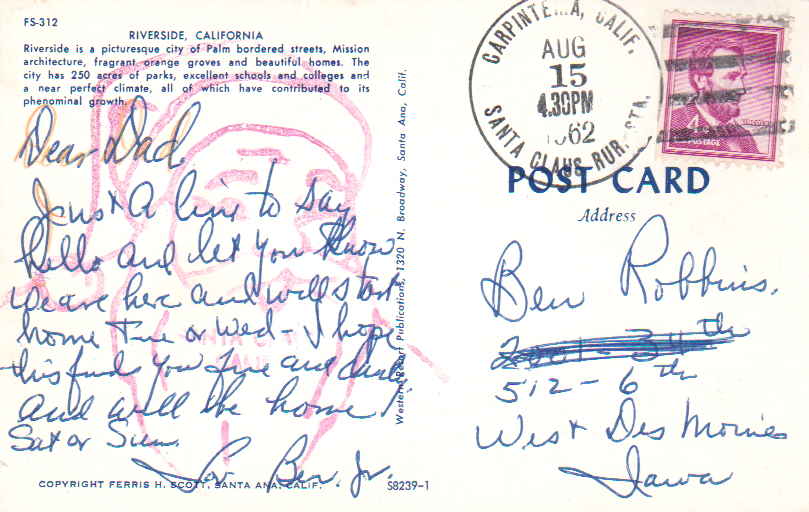 FS-312
RIVERSIDE, CALIFORNIA
Riverside is a picturesque city of Palm bordered streets, Mission
architecture, fragrant orange groves and beautiful homes. The
city has 250 acres of parks, excellent schools and colleges and
a near perfect climate, all of which have contributed to its
phenomenal growth.
Dear Dad
Jus+ A line to say
hello and let you know
we are here and will start
home Tue or Wed - I hope
this finds you fine and
and will be home
Sat or Sun.
Lov Ben. Jr.
COPYRIGHT FERRIS H. SCOTT, SANTA ANA, CALIF.
S8239-1
Western Resort Publications, 1320 N. Broadway, Santa Ana, Calif.
SANTA CLAUS
CALIF
CARPINTERIA, CALIF.
AUG
15
4.30PM
1962
SANTA CLAUS RUR. STA.
4¢
POSTAGE
POST CARD
Address
Ben Robbins.
512-6th
West Des Moines
Iowa